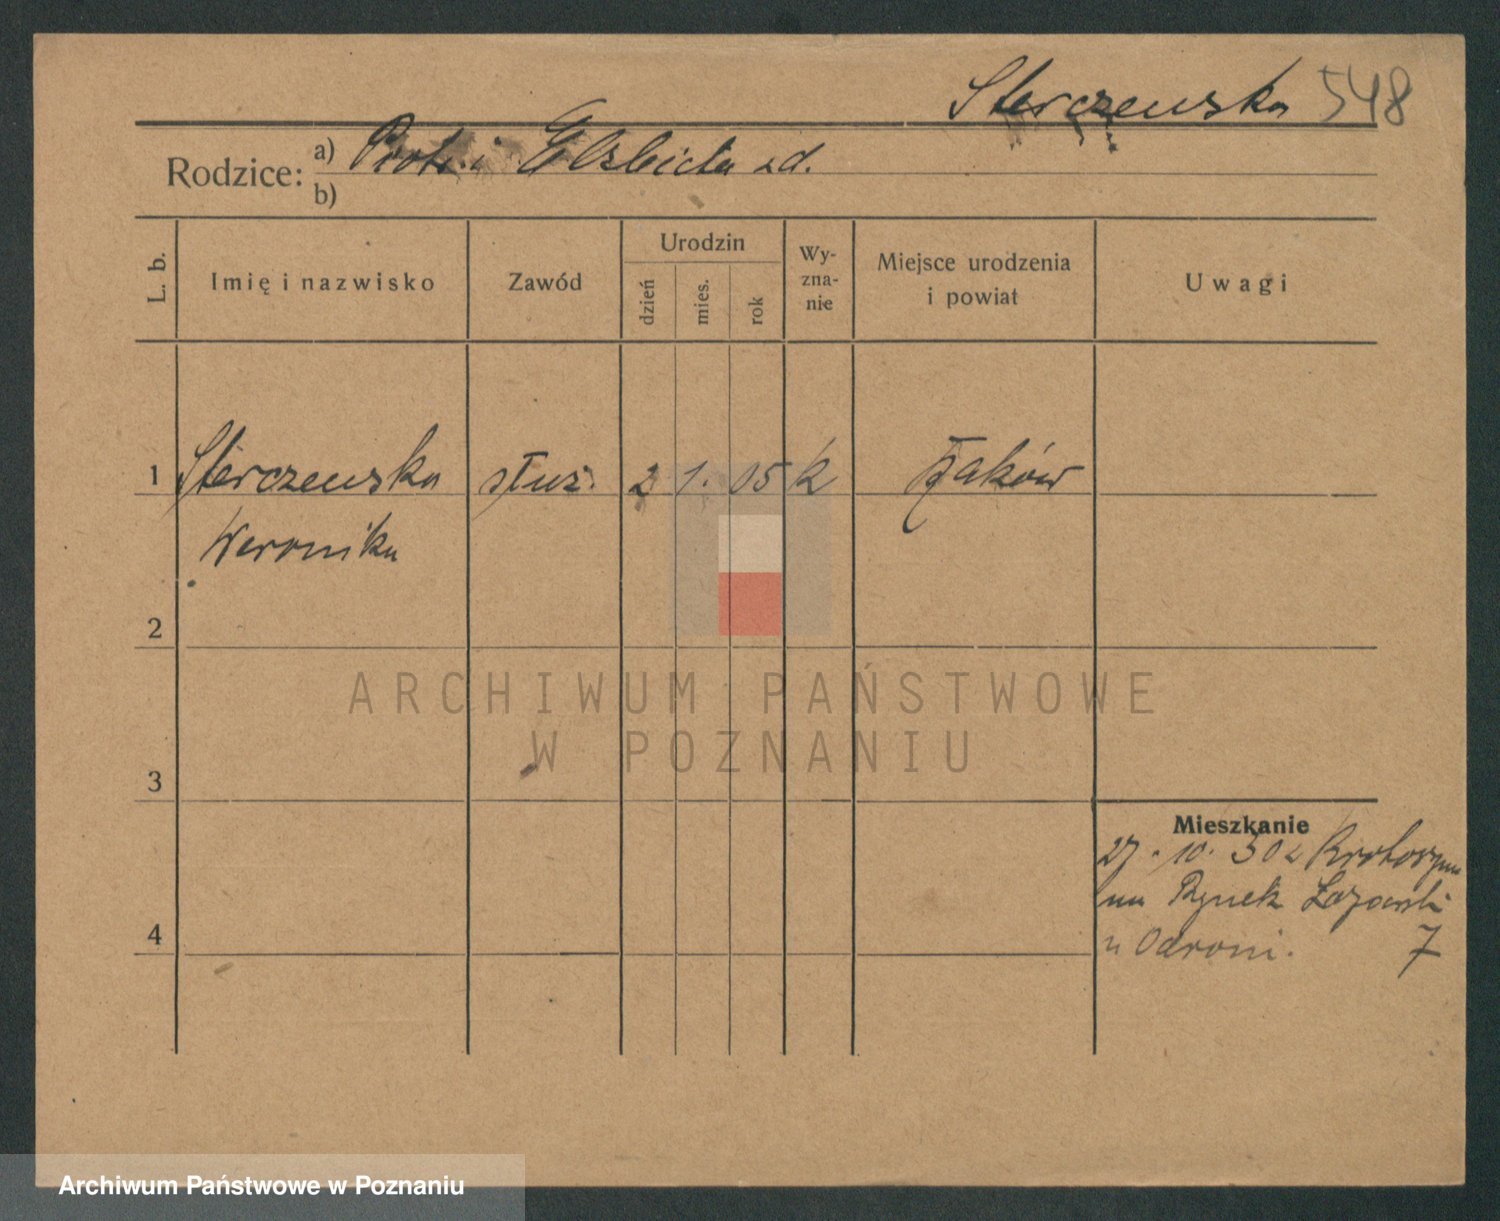 Sterczewska 548
Rodzice: a) Piotr i Elżbieta zd.
b)
L. b. Imię i nazwisko Zawód Urodzin dzień mies. rok Wy-zna-nie Miejsce urodzenia i powiat Uwagi
1 Sterczewska służ. 2 1. 05 k
Weronika
2
ARCHIWUM PAŃSTWOWE
W POZNANIU
3
Mieszkanie
27. 10. 30 z Krotoszyna
na Rynek Łazarski
4 u Odroni. 7
Archiwum Państwowe w Poznaniu